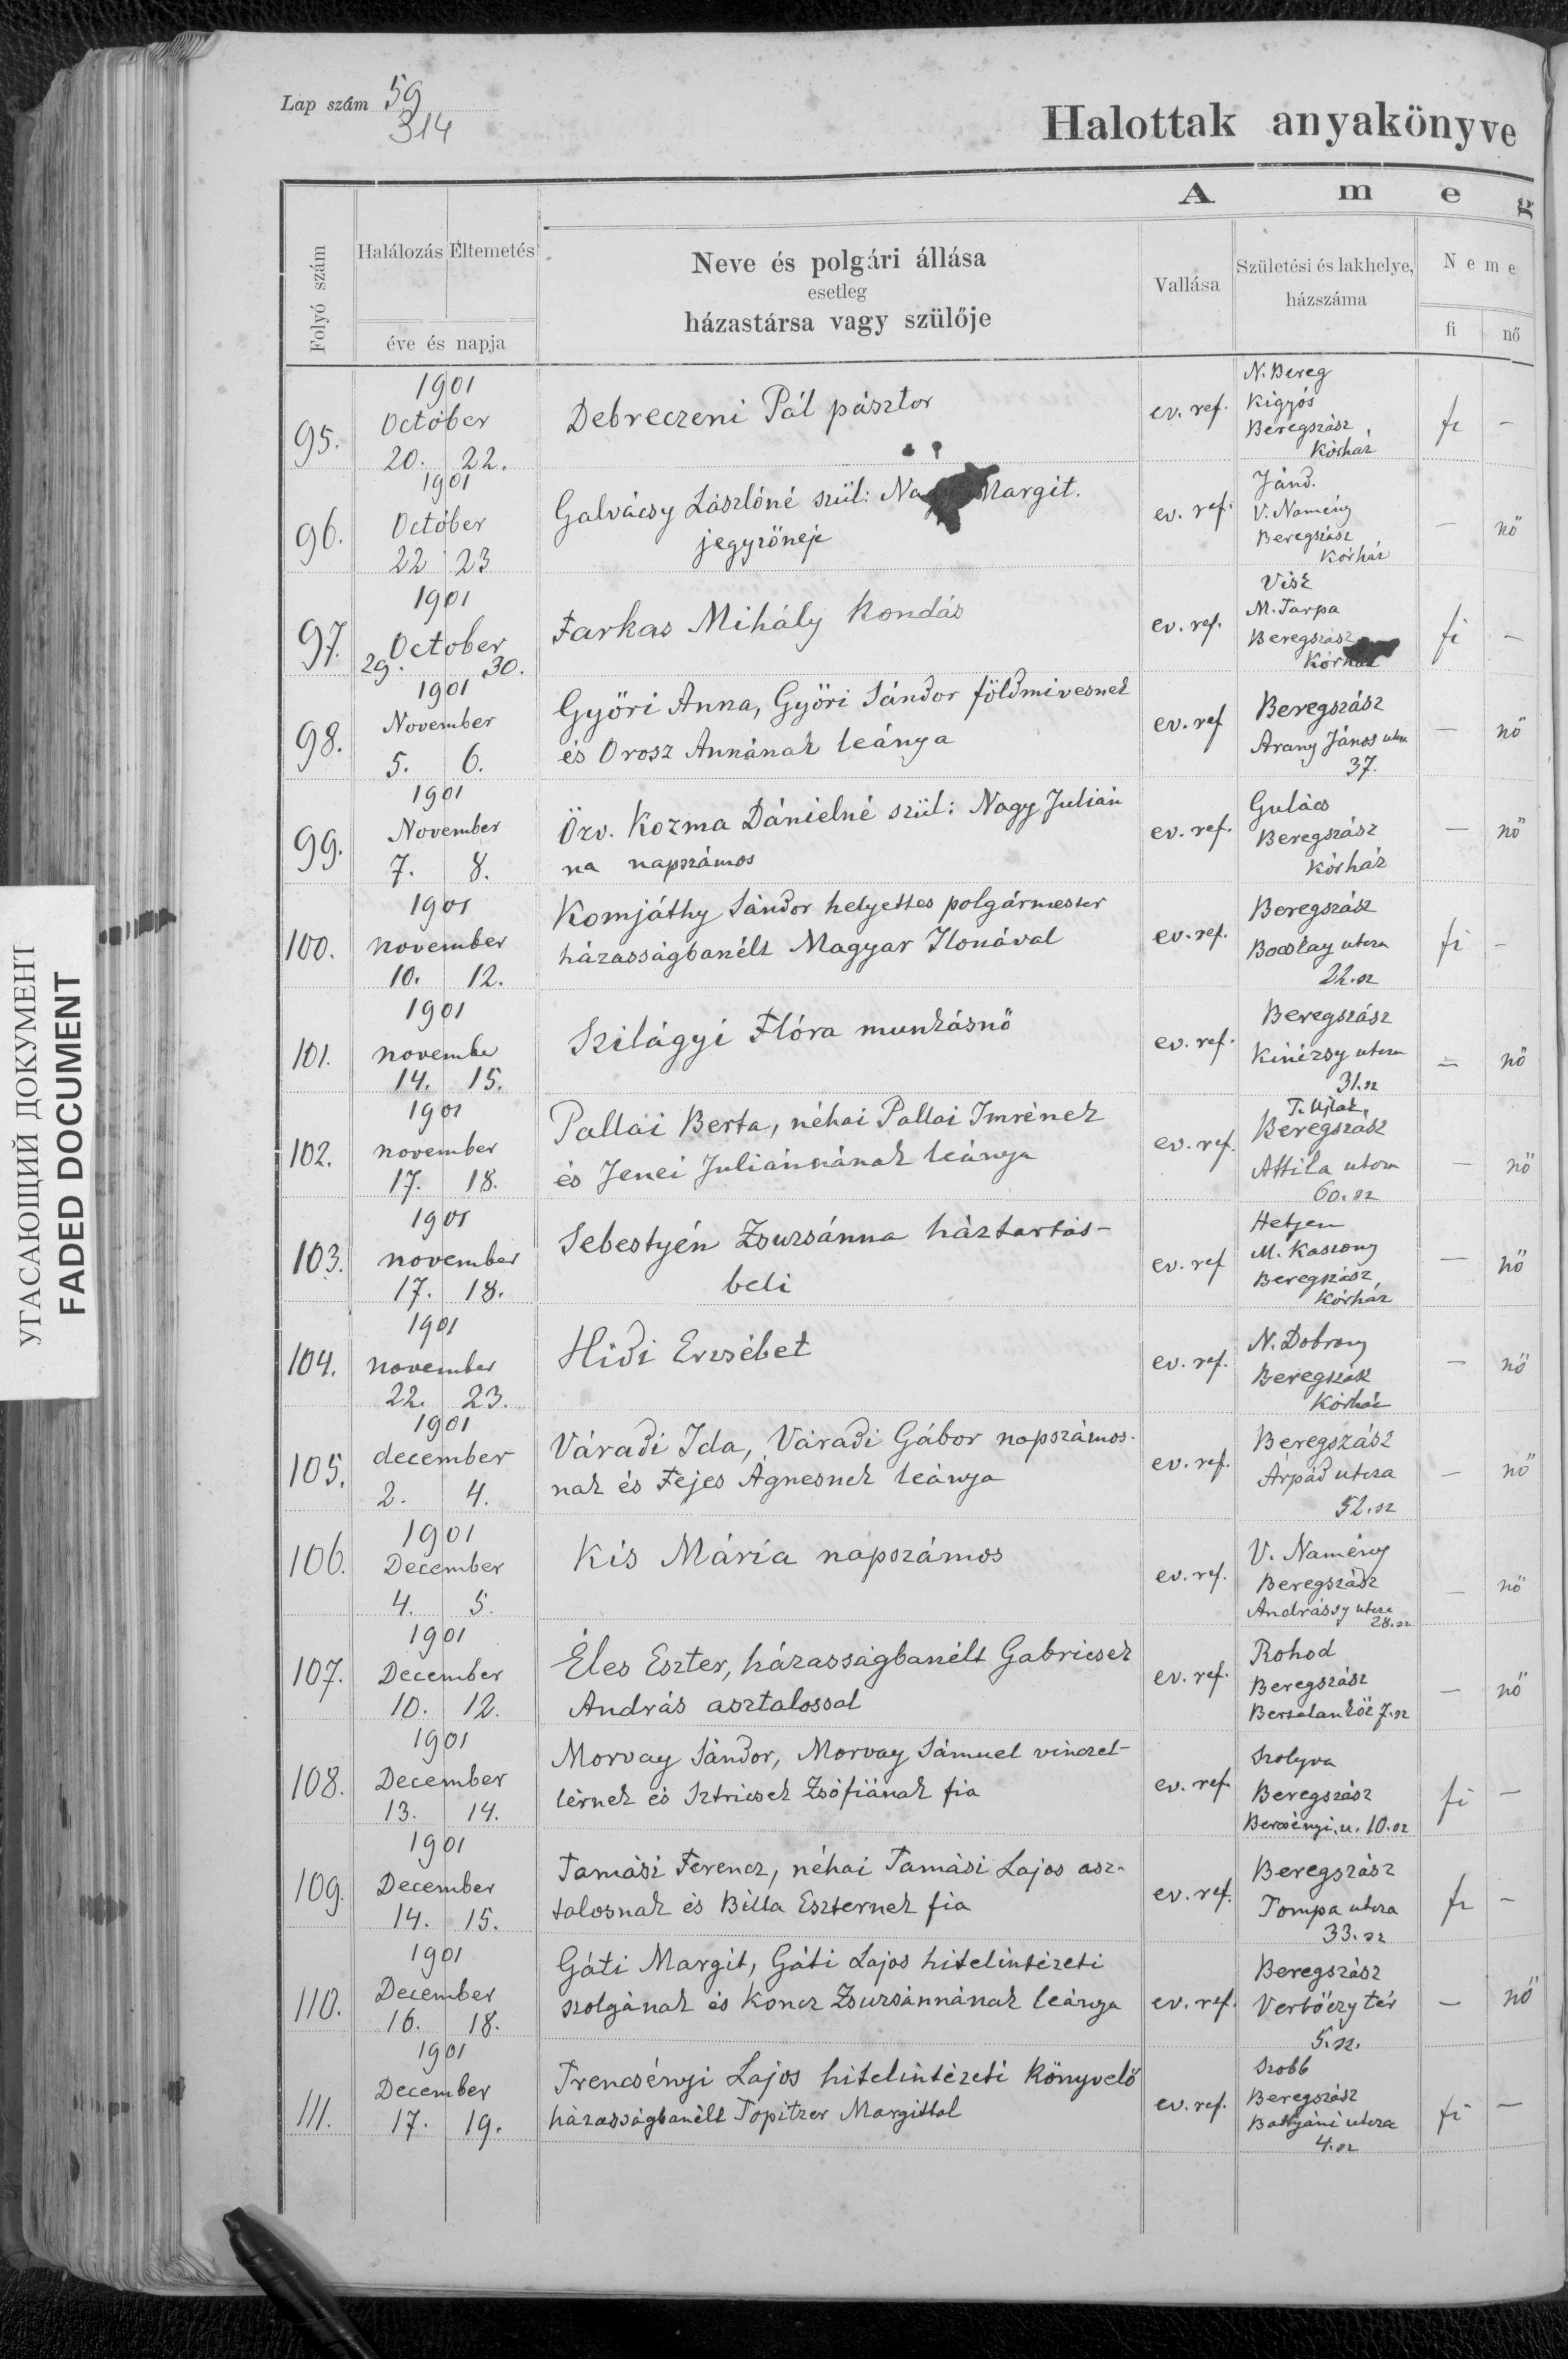 Lap szám 59
314
Halottak anyakönyve
A m e g
Folyó szám
Halálozás Eltemetés
éve és napja
Neve és polgári állása
esetleg
házastársa vagy szülője
Vallása
Születési és lakhelye,
házszáma
Neme
fi nő
95.
1901
Octóber
20. 22.
Debreczeni Pál pásztor
ev. ref.
N. Bereg
Kigyós
Beregszász,
Kórház
fi -
96.
1901
Octóber
22 23
Galvácsy Lászlóné szül: Nagy Margit.
jegyzőneje
ev. ref.
Jánd.
V. Namény
Beregszász
Kórház
- nő
97.
1901
October
29. 30.
Farkas Mihály Kondás
ev. ref.
Visk
M. Tarpa
Beregszász
Kórház
fi -
98.
1901
November
5. 6.
Győri Anna, Győri Sándor földmivesnek
és Orosz Annának leánya
ev. ref
Beregszász
Arany János utca
37.
- nő
99.
1901
November
7. 8.
Özv. Kozma Dánielné szül: Nagy Julián
na napszámos
ev. ref.
Gulács
Beregszász
Kórház
- nő
100.
1901
november
10. 12.
Komjáthy Sándor helyettes polgármester
házasságbanélt Magyar Ilonával
ev. ref.
Beregszász
Bocskay utcza
22. sz
fi -
101.
1901
november
14. 15.
Szilágyi Flóra munkásnő
ev. ref.
Beregszász
Kinizsy utcza
31. sz
= nő
102.
1901
november
17. 18.
Pallai Berta, néhai Pallai Imrének
és Jenei Juliánnának leánya
ev. ref.
T. Ujlak,
Beregszász
Attila utcza
60. sz
- nő
103.
1901
november
17. 18.
Sebestyén Zsuzsánna háztartás-
beli
ev. ref
Hetyen
M. Kaszony
Beregszász,
Kórház
- nő
104.
1901
november
22. 23.
Hidi Erzsébet
ev. ref.
N. Dobrony
Beregszász
Kórház
- nő
105.
1901
december
2. 4.
Váradi Ida, Váradi Gábor napszámos-
nak és Fejes Ágnesnek leánya
ev. ref.
Beregszász
Árpád utcza
52. sz
- nő
106.
1901
December
4. 5.
Kis Mária napszámos
ev. ref.
V. Namény
Beregszász
Andrássy utcza
28. sz
- nő
107.
1901
December
10. 12.
Éles Eszter, házasságbanélt Gabricsek
András asztalossal
ev. ref.
Rohod
Beregszász
Bertalan köz 7. sz
- nő
108.
1901
December
13. 14.
Morvay Sándor, Morvay Sámuel vinczel-
lérnek és Sztricsek Zsófiának fia
ev. ref.
Szolyva
Beregszász
Bercsényi. u. 10. sz
fi -
109.
1901
December
14. 15.
Tamási Ferencz, néhai Tamási Lajos asz-
talosnak és Billa Eszternek fia
ev. ref.
Beregszász
Tompa utcza
33. sz
fi -
110.
1901
December
16. 18.
Gáti Margit, Gáti Lajos hitelintézeti
szolgának és Koncz Zsuzsánnának leánya
ev. ref.
Beregszász
Verbőczy tér
5. sz.
- nő
111.
1901
December
17. 19.
Trencsényi Lajos hitelintézeti könyvelő
házasságbanélt Topitzer Margittal
ev. ref.
Szobb
Beregszász
Battyáni utcza
4. sz
fi -
УГАСАЮЩИЙ ДОКУМЕНТ
FADED DOCUMENT